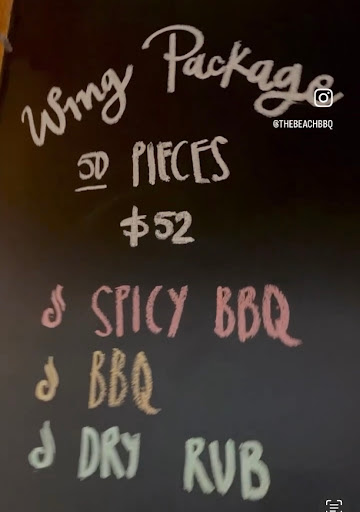 Wing Package
@THEBEACHBBQ
50 PIECES
$52
SPICY BBQ
BBQ
DRY RUB